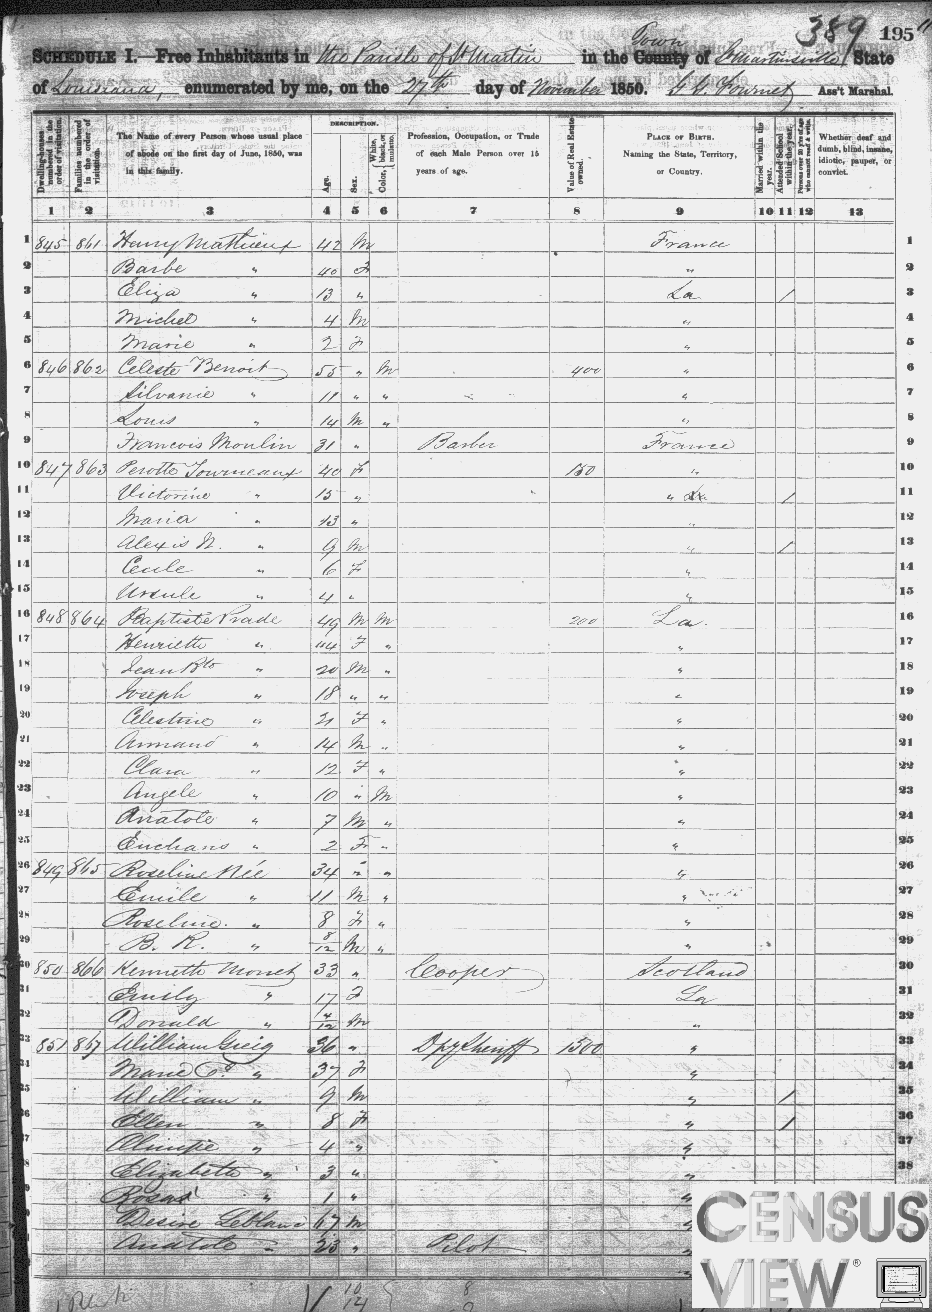 389 195
SCHEDULE I.—Free Inhabitants in the Parish of St Martin in the County Town of St Martinsville State
of Louisiana, enumerated by me, on the 27th day of November 1850. Fournet Ass't Marshal.
Dwelling-houses numbered in the order of visitation.
Families numbered in the order of visitation.
The Name of every Person whose usual place of abode on the first day of June, 1850, was in this family.
DESCRIPTION.
Age.
Sex.
Color, White, black, or mulatto.
Profession, Occupation, or Trade of each Male Person over 15 years of age.
Value of Real Estate owned.
PLACE OF BIRTH. Naming the State, Territory, or Country.
Married within the year.
Attended School within the year.
Persons over 20 y'rs of age who cannot read & write.
Whether deaf and dumb, blind, insane, idiotic, pauper, or convict.
1 2 3 4 5 6 7 8 9 10 11 12 13
1 845 861 Henry Mathieux 42 M France 1
2 Barbe " 40 F " 2
3 Eliza " 13 " La / 3
4 Michel " 4 M " 4
5 Marie " 2 F " 5
6 846 862 Celeste Benoit 55 " M 400 " 6
7 Silvanie " 11 " " " 7
8 Louis " 14 M " " 8
9 Francois Moulin 31 " Barber France 9
10 847 863 Perotte Tourneaux 40 F 150 " 10
11 Victorine " 15 " " La / 11
12 Maria " 13 " " 12
13 Alexis N. " 9 M " / 13
14 Cecile " 6 F " 14
15 Ursule " 4 " " 15
16 848 864 Baptiste Prade 49 M M 200 La. 16
17 Henriette " 44 F " " 17
18 Jean Bte " 20 M " " 18
19 Joseph " 18 " " " 19
20 Celestine " 21 F " " 20
21 Armand " 14 M " " 21
22 Clara " 12 F " " 22
23 Angele " 10 " M " 23
24 Anatole " 7 M " " 24
25 " 2 F " " 25
26 849 865 Roseline Née 34 " " " 26
27 Emile " 11 M " " 27
28 Roseline. " 8 F " " 28
29 B. R. " 8/12 M " " 29
30 850 866 Kenneth 33 " Cooper Scotland 30
31 Emily " 17 F La 31
32 Donald " 4/12 M " 32
33 851 867 William Greig 36 " Dpy Sheriff 1500 " 33
34 Marie C. " 37 F " 34
35 William " 9 M " / 35
36 Ellen " 8 F " / 36
37 Olimpe " 4 " " 37
38 Elizabeth " 3 " " 38
Rosa " 1 " "
Desire Leblanc 67 M "
Anatole " 23 Pilot "
10
14
8
CENSUS
VIEW®